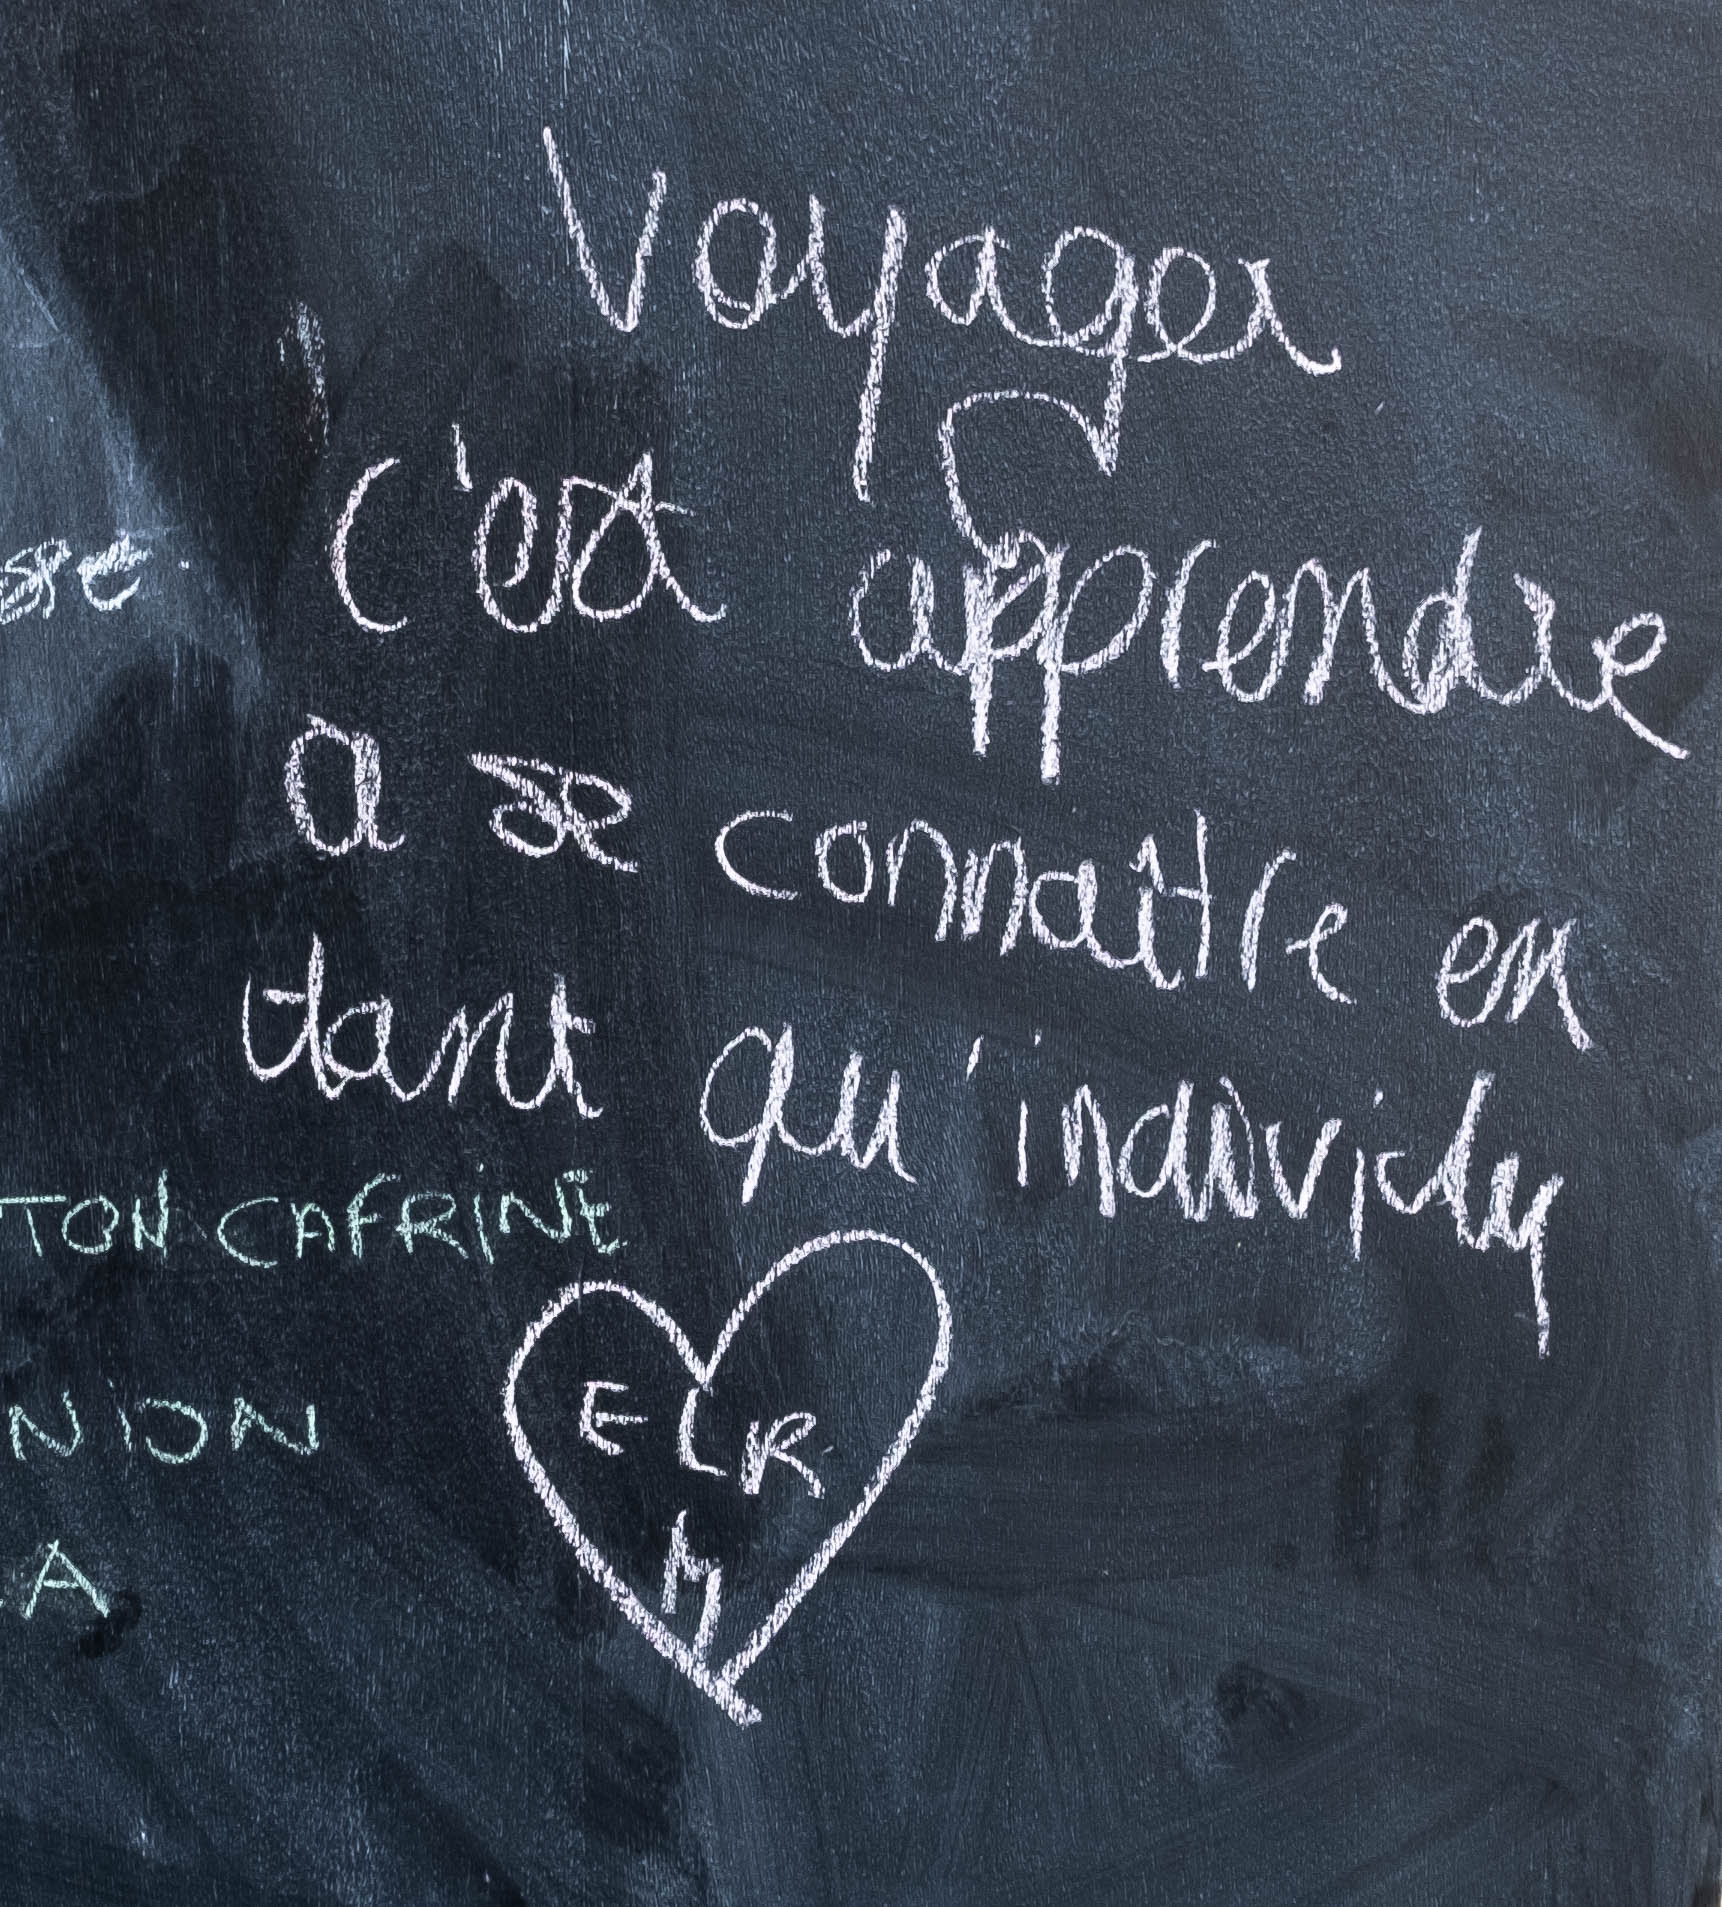 Voyager
c'est apprendre
a se connaître en
tant qu'individu
TON CAFRINE
NION
A
E L R
M